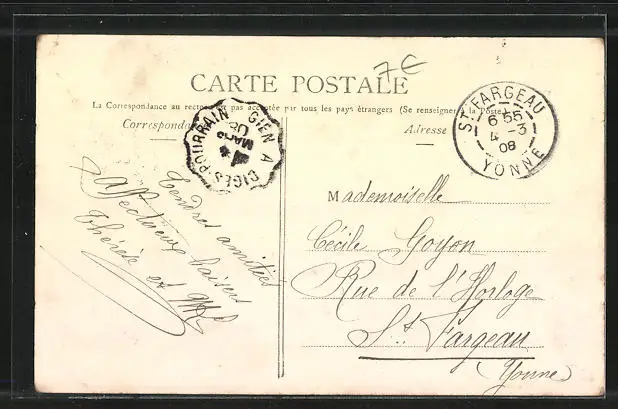 7€
CARTE POSTALE
La Correspondance au recto n'est pas acceptée par tous les pays étrangers (Se renseigner à la Poste)
Correspondance
Adresse
GIEN A DIGES-POURRAIN
4
MARS
08
ST FARGEAU
6 55
4 -3
08
YONNE
Tendres amitiés
Affectueux baisers
Thérèse et
Mademoiselle
Cécile Goyon
Rue de l'Horloge
St. Fargeau
(Yonne)